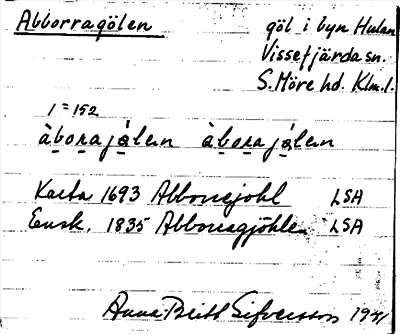 Abborragölen
göl i byn Hulan
Vissefjärda sn.
S. Möre hd. Klm.l.
1 = 152
àboraǰǿlen àboraǰǿlen
Karta 1693 Abboregjöhl LSA
Ensk. 1835 Abborragjöhlen LSA
Anna-Britt Sifversson 1941